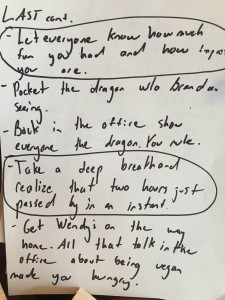 LAST cont.
- Let everyone know how much
fun you had and how
you are.
- Pocket the dragon w/o Brandon
seeing.
- Back in the office show
everyone the dragon. You rule.
- Take a deep breath and
realize that two hours just
passed by in an instant.
- Get Wendy's on the way
home. All that talk in the
office about being vegan
made you hungry.